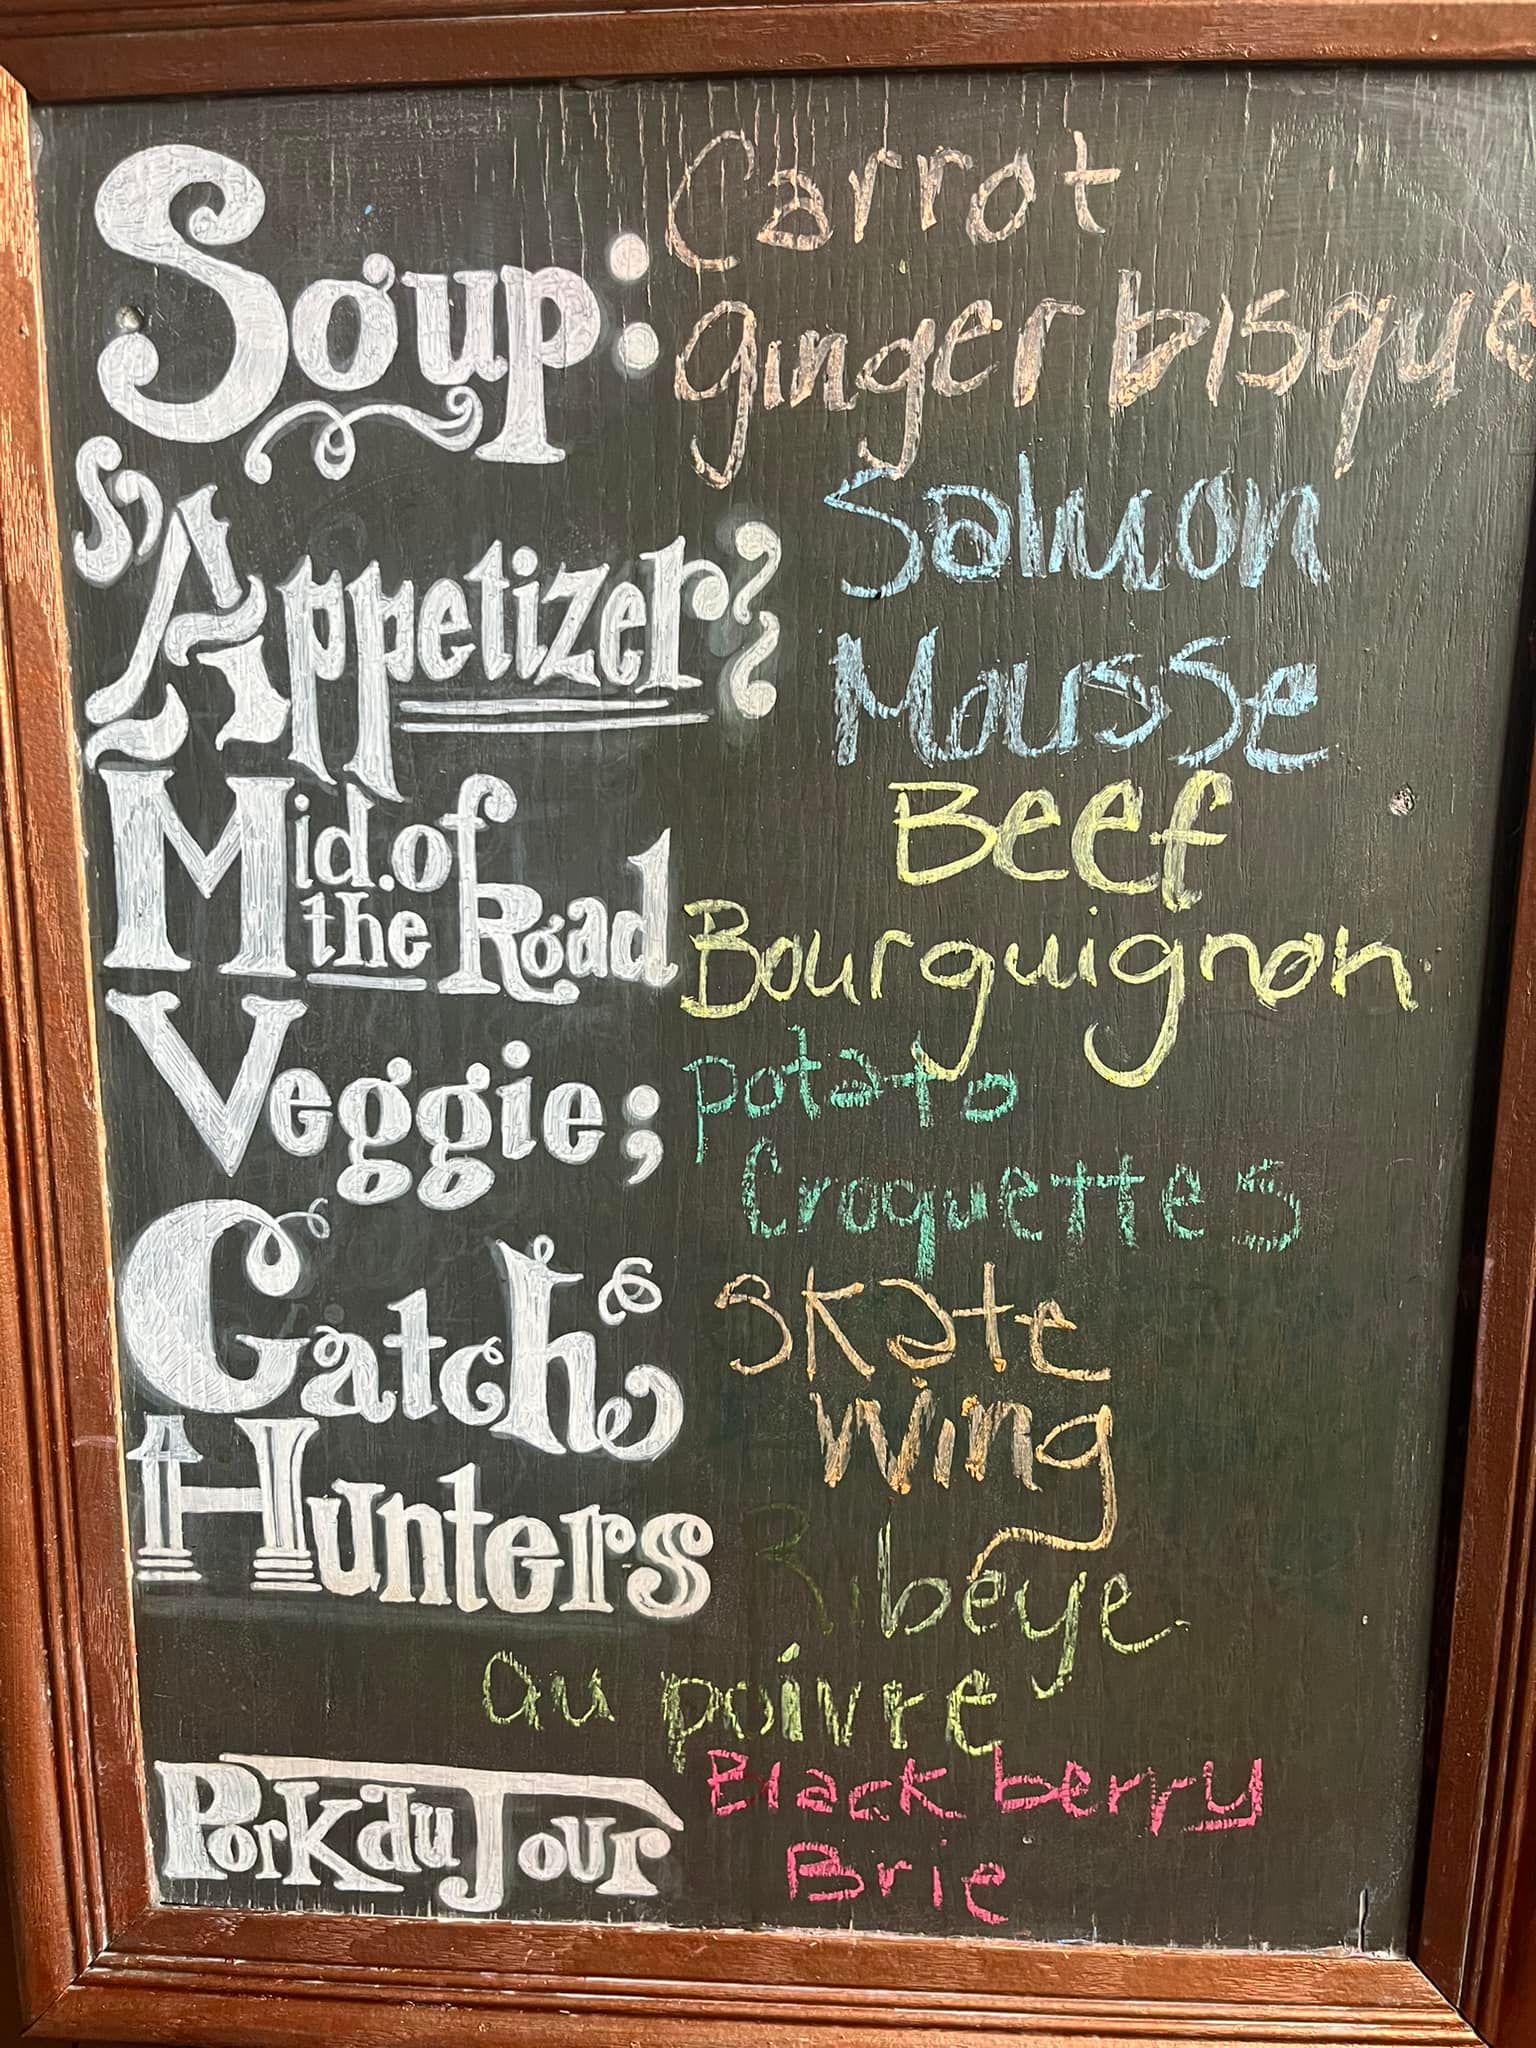 Soup: Carrot
ginger bisque
Appetizer Salmon
Mousse
Mid. of the Road Beef
Bourguignon
Veggie; potato
Croquettes
Catch Skate
Wing
Hunters Ribeye
au poivre
Pork du Jour Blackberry
Brie